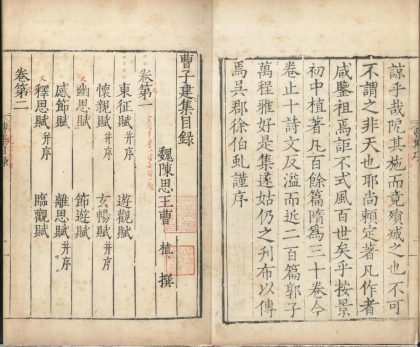 諒乎哉阨其施而竟殞滅之也不可
不謂之非天也耶尚賴定著凡作者
咸鑒祖焉詎不式風百世矣乎按景
初中植著凡百餘篇隋為三十卷今
卷止十詩文反溢而近二百篇郭子
萬程雅好是集遂姑仍之刊布以傳
焉吳郡徐伯虬謹序
曹子建集目錄
魏陳思王曹 植 撰
卷第一
東征賦并序 遊觀賦
懷親賦并序 玄暢賦并序
幽思賦 節遊賦
感節賦 離思賦并序
釋思賦并序 臨觀賦
卷第二